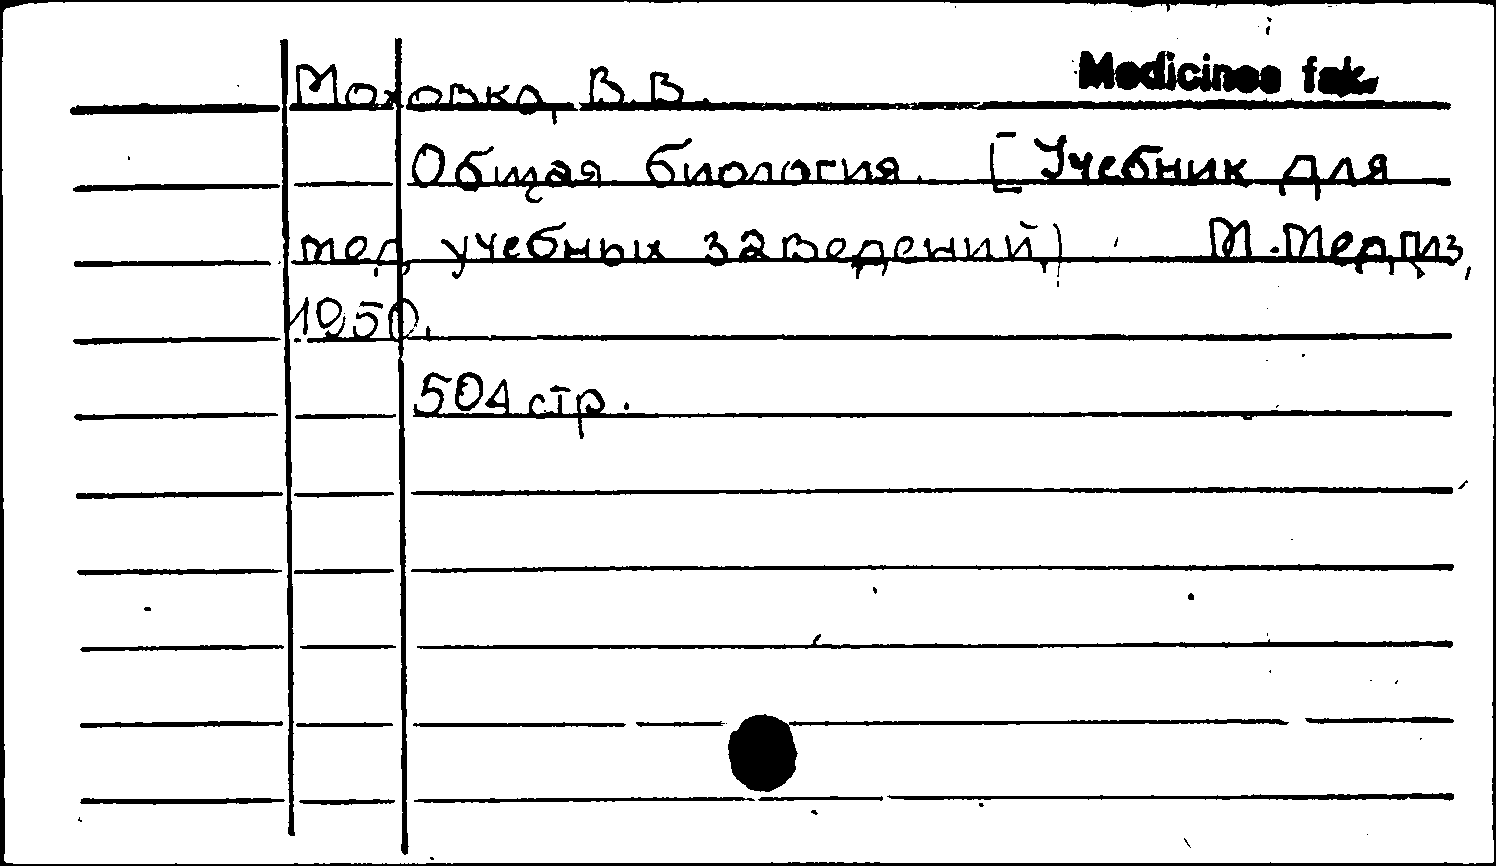 Medicinas fak.
Моховка, В.В.
Общая биология. [Учебник для
мед учебных заведений,) М. Медгиз,
1950.
504 стр.